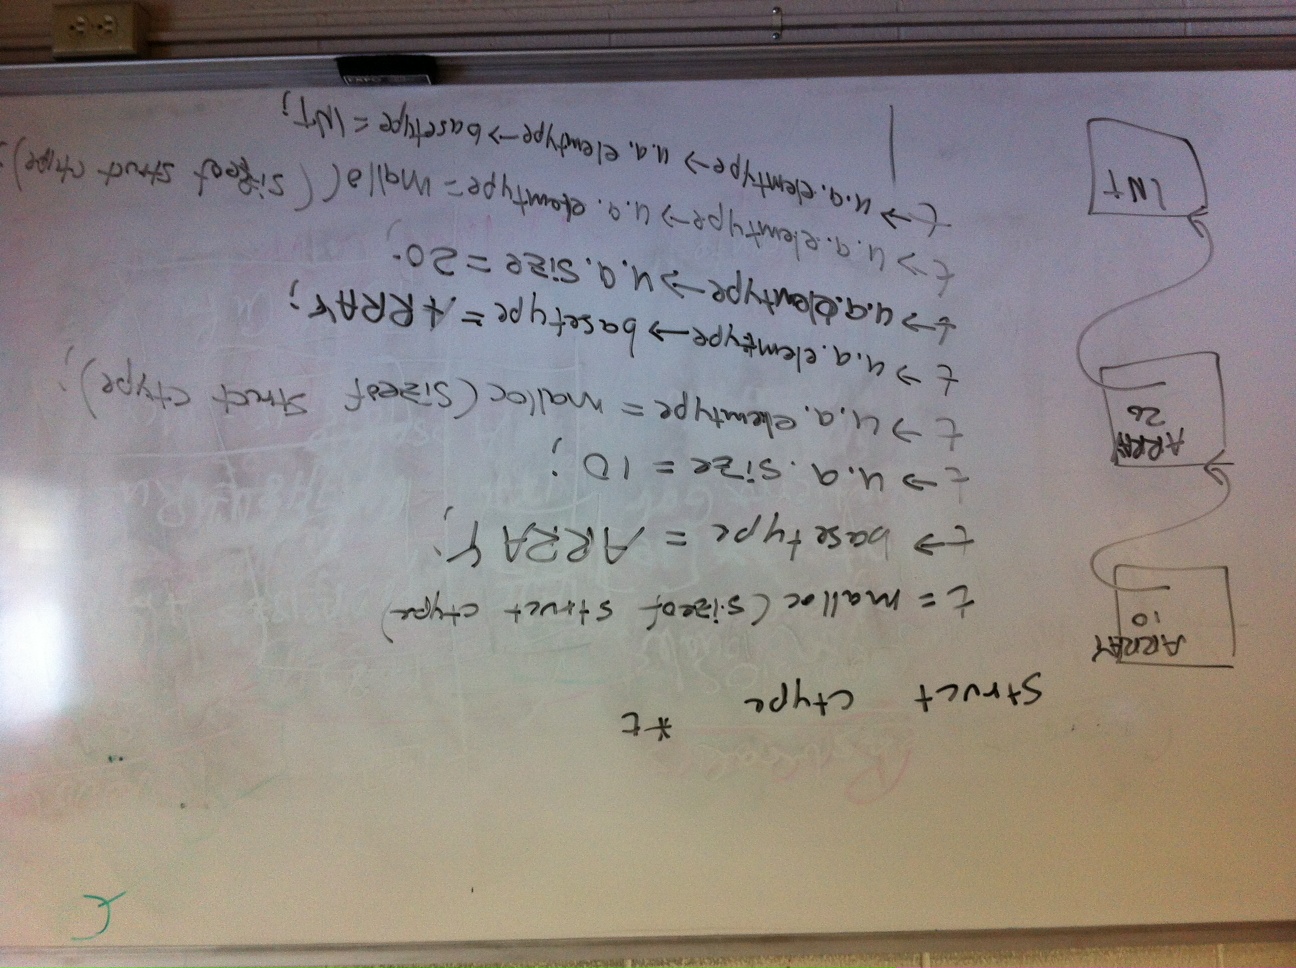 struct ctype *t
ARRAY
10
t = malloc(sizeof struct ctype)
t→ basetype = ARRAY;
t→ u.a.size = 10;
ARRAY
20
t→ u.a.elemtype = malloc(sizeof struct ctype);
t→ u.a.elemtype→ basetype = ARRAY;
t→ u.a.elemtype→ u.a.size = 20;
t→ u.a.elemtype→ u.a.elemtype = malloc(sizeof struct ctype);
INT
t→ u.a.elemtype→ u.a.elemtype→ basetype = INT;